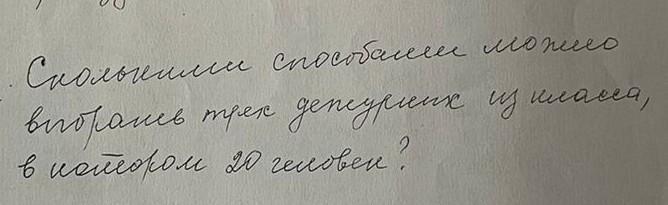 Сколькими способами можно
выбрать трех дежурных из класса,
в котором 20 человек?